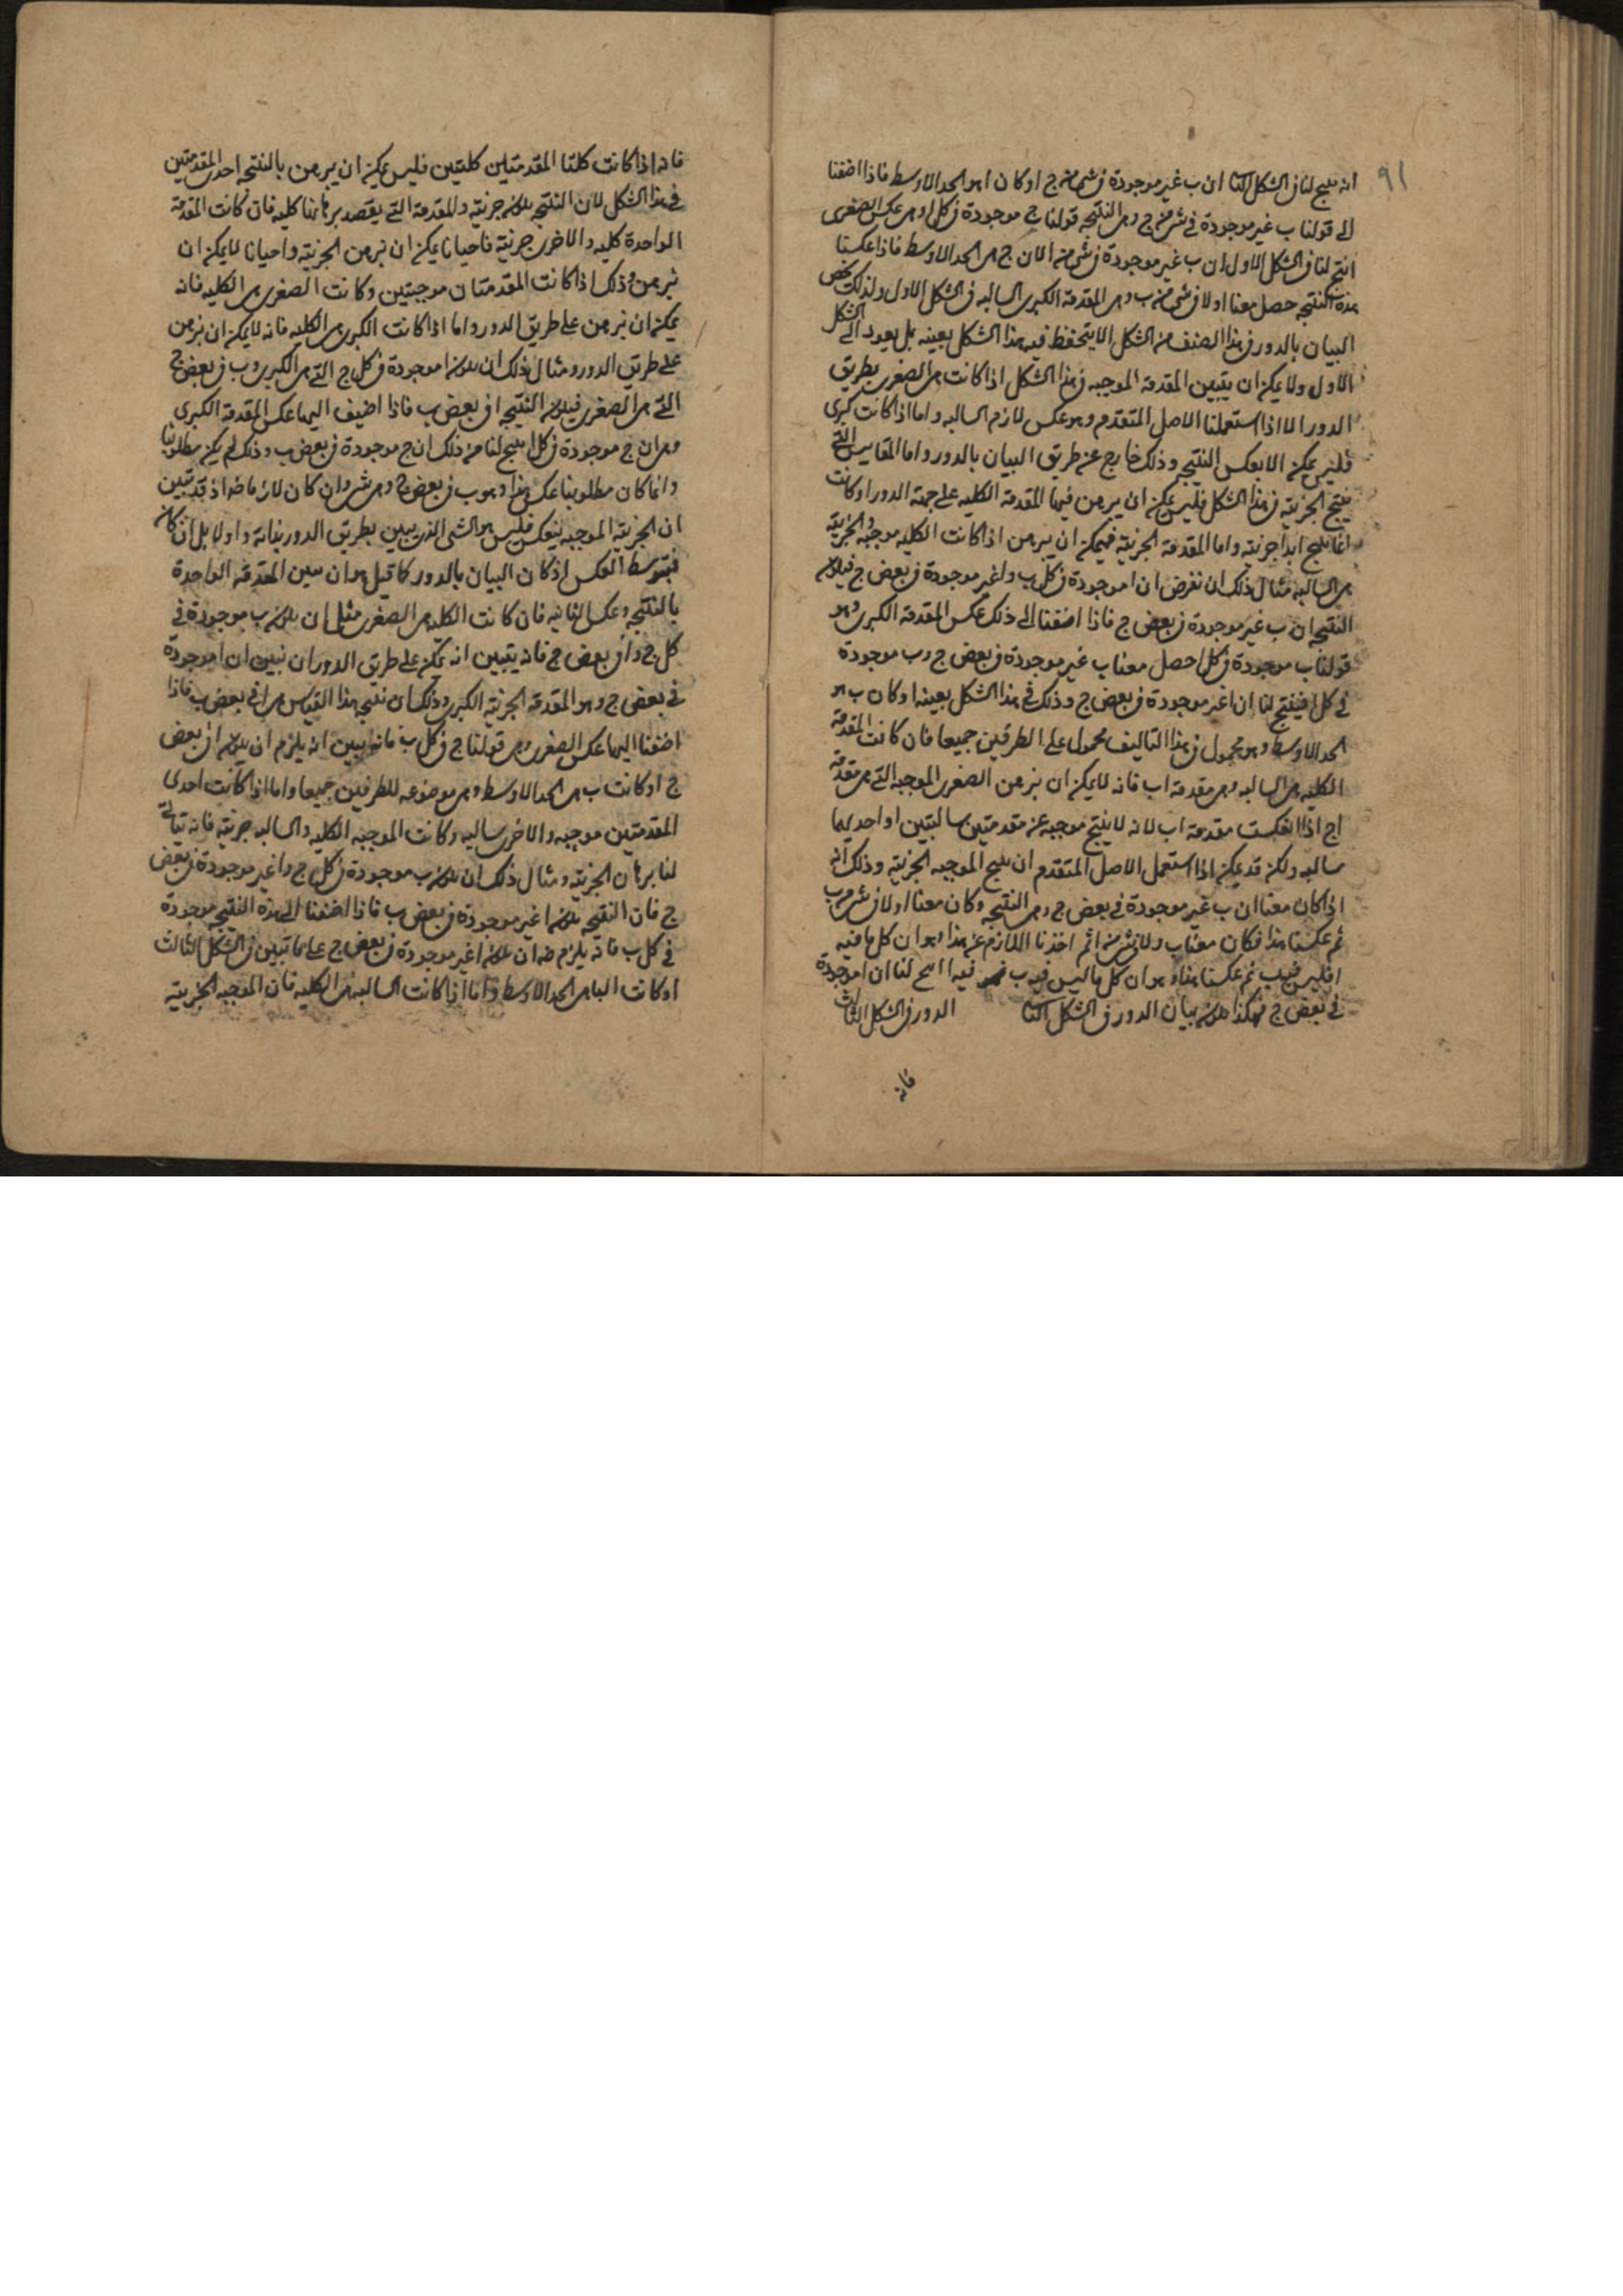 ٩١
انه ينتج لنا في الشكل الثا ان ب غير موجودة في شي من ج اوكان ا هو الحد الاوسط فاذا اضفنا
الى قولنا ب غير موجودة في شي من ج وهي النتيجه قولنا ج موجودة في كل ا وهي عكس الصغرى
انتج لنا في الشكل الاول ان ب غير موجودة في شي من ا لان ج هي الحد الاوسط فاذا عكسنا
هذه النتيجه حصل معنا ا ولا في شي من ب وهي المقدمة الكبرى السالبه في الشكل الاول ولذلك يخص
البيان بالدور في هذا الصنف من الشكل الا يتحفظ فيه هذا الشكل بعينه بل يعود الى الشكل
الاول ولا يمكن ان يتبين المقدمة الموجبه في هذا الشكل اذا كانت هي الصغرى بطريق
الدور الا اذا استعملنا الاصل المتقدم وهو عكس لازم السالبه واما اذا كانت كبرى
فليس يمكن الا بعكس النتيجه وذلك خارج عن طريق البيان بالدور واما المقاييس التي
ينتج الجزئية في هذا الشكل فليس يمكن ان يبرهن فيها المقدمة الكليه على جهة الدور اوكانت
انما ينتج ابدا جزئية واما المقدمة الجزئية فيمكن ان يبرهن اذا كانت الكليه موجبه والجزئية
هي السالبه مثال ذلك ان نفرض ان ا موجودة في كل ب وا غير موجودة في بعض ج فيكون
النتيجه ان ب غير موجودة في بعض ج فاذا اضفنا الى ذلك عكس المقدمة الكبرى وهو
قولنا ب موجودة في كل ا حصل معنا ب غير موجودة في بعض ج وب موجودة
في كل ا فينتج لنا ان ا غير موجودة في بعض ج وذلك في هذا الشكل بعينه اوكان ب هو
الحد الاوسط وهو محمول في هذا التاليف محمول على الطرفين جميعا فان كانت المقدمة
الكليه هي السالبه وهي مقدمة اب فانه لا يمكن ان نبرهن الصغرى الموجبه التي هي مقدمة
اج اذا انعكست مقدمة اب لانه لا ينتج موجبه عن مقدمتين سالبتين او احديهما
سالبه ولكن قد يمكن اذا استعمل الاصل المتقدم ان ينتج الموجبه الجزئية وذلك انه
اذا كان معنا ان ب غير موجودة في بعض ج وهي النتيجه وكان معنا ا ولا في شي من ب
ثم عكسنا هذا فكان معنا ب ولا في شي من ا ثم اخذنا اللازم عن هذا وهو ان كل ما فيه
ا فليس فيه ب ثم عكسنا هذا وهو ان كل ما ليس فيه ب فيه ا انتج لنا ان ا موجودة
في بعض ج فهكذا يكون بيان الدور في الشكل الثا الدور في الشكل الثالث
فانه
فانه اذا كانت كلتا المقدمتين كليتين فليس يمكن ان يبرهن بالنتيجه احدى المقدمتين
في هذا الشكل لان النتيجه يكون جزئية والمقدمة التي يقصد برهانها كليه فان كانت المقدمة
الواحدة كليه والاخرى جزئية فاحيانا يمكن ان نبرهن الجزئية واحيانا لا يمكن ان
نبرهن وذلك اذا كانت المقدمتان موجبتين وكانت الصغرى هي الكليه فانه
يمكن ان نبرهن على طريق الدور واما اذا كانت الكبرى هي الكليه فانه لا يمكن ان نبرهن
على طريق الدور ومثال ذلك ان يكون ا موجودة في كل ج التي هي الكبرى وب في بعض ج
التي هي الصغرى فيكون النتيجه ا في بعض ب فاذا اضيف اليها عكس المقدمة الكبرى
وهي ان ج موجودة في كل ا ينتج لنا من ذلك ان ج موجودة في بعض ب وذلك لم يكن مطلوبنا
وانما كان مطلوبنا عكس هذا وهو ب في بعض ج وهي شي وان كان لازما ضه اذ قد تبين
ان الجزئية الموجبه ينعكس فليس هو الشي الذي يبين بطريق الدور بذاته واولا بل ان كان
فبتوسط العكس اذ كان البيان بالدور كما قيل هو ان يبين المقدمه الواحدة
بالنتيجه وعكس الثانيه فان كانت الكليه هي الصغرى مثل ان يكون ب موجودة في
كل ج وا في بعض ج فانه يتبين انه يمكن على طريق الدور ان نبين ان ا موجودة
في بعض ج وهو المقدمة الجزئية الكبرى وذلك ان نتيجه هذا القياس هي ا في بعض ب فاذا
اضفنا اليها عكس الصغرى وهي قولنا ج في كل ب فانه يبين انه يلزم ان يكون ا في بعض
ج اوكانت ب هي الحد الاوسط وهي موضوعه للطرفين جميعا واما اذا كانت احدى
المقدمتين موجبه والاخرى سالبه وكانت الموجبه الكليه والسالبه جزئية فانه يتاتى
لنا برهان الجزئية ومثال ذلك ان يكون ب موجودة في كل ج وا غير موجودة في بعض
ج فان النتيجه يكون ا غير موجودة في بعض ب فاذا اضفنا الى هذه النتيجه ج موجودة
في كل ب فانه يلزم ضه ان يكون ا غير موجودة في بعض ج على ما تبين في الشكل الثالث
اوكانت البا هي الحد الاوسط واما اذا كانت السالبه هي الكليه فان الموجبه الجزئية